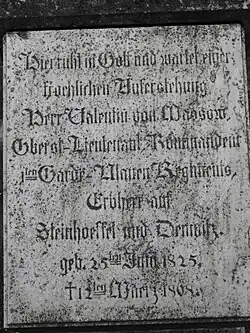 Hier ruht in Gott und wartet einer
froehlichen Auferstehung
Herr Valentin von Massow,
Oberst-Lieutenant Kommandeur
1ten Garde-Ulanen Regiments,
Erbherr auf
Steinhoefel und Demnitz.
geb. 25ten Juni 1825,
† 12ten Maerz 1868.